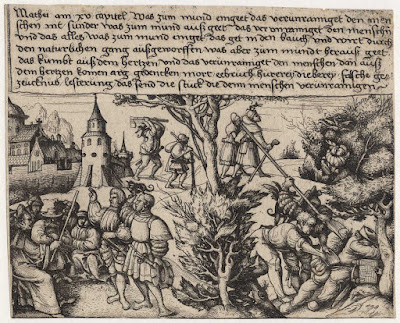 Mathei am xv capitel Was zum mund eingeet das verunrainiget den men
schen nit sunder was zum mund auß geet das verunrainiget den menschn
und das alles was zum mund eingeet das get in den bauch und wirt durch
den naturlichen gang außgeworffen was aber zum mundt heraus geet
das kumbt auß dem hertzen und das verunrainiget den menschen dan auß
dem hertzen komen arg gedencken mort eebruch hurerey dieberey falsche ge
zeucknus lesterung das send die stuck die denn menschen verunrainigen